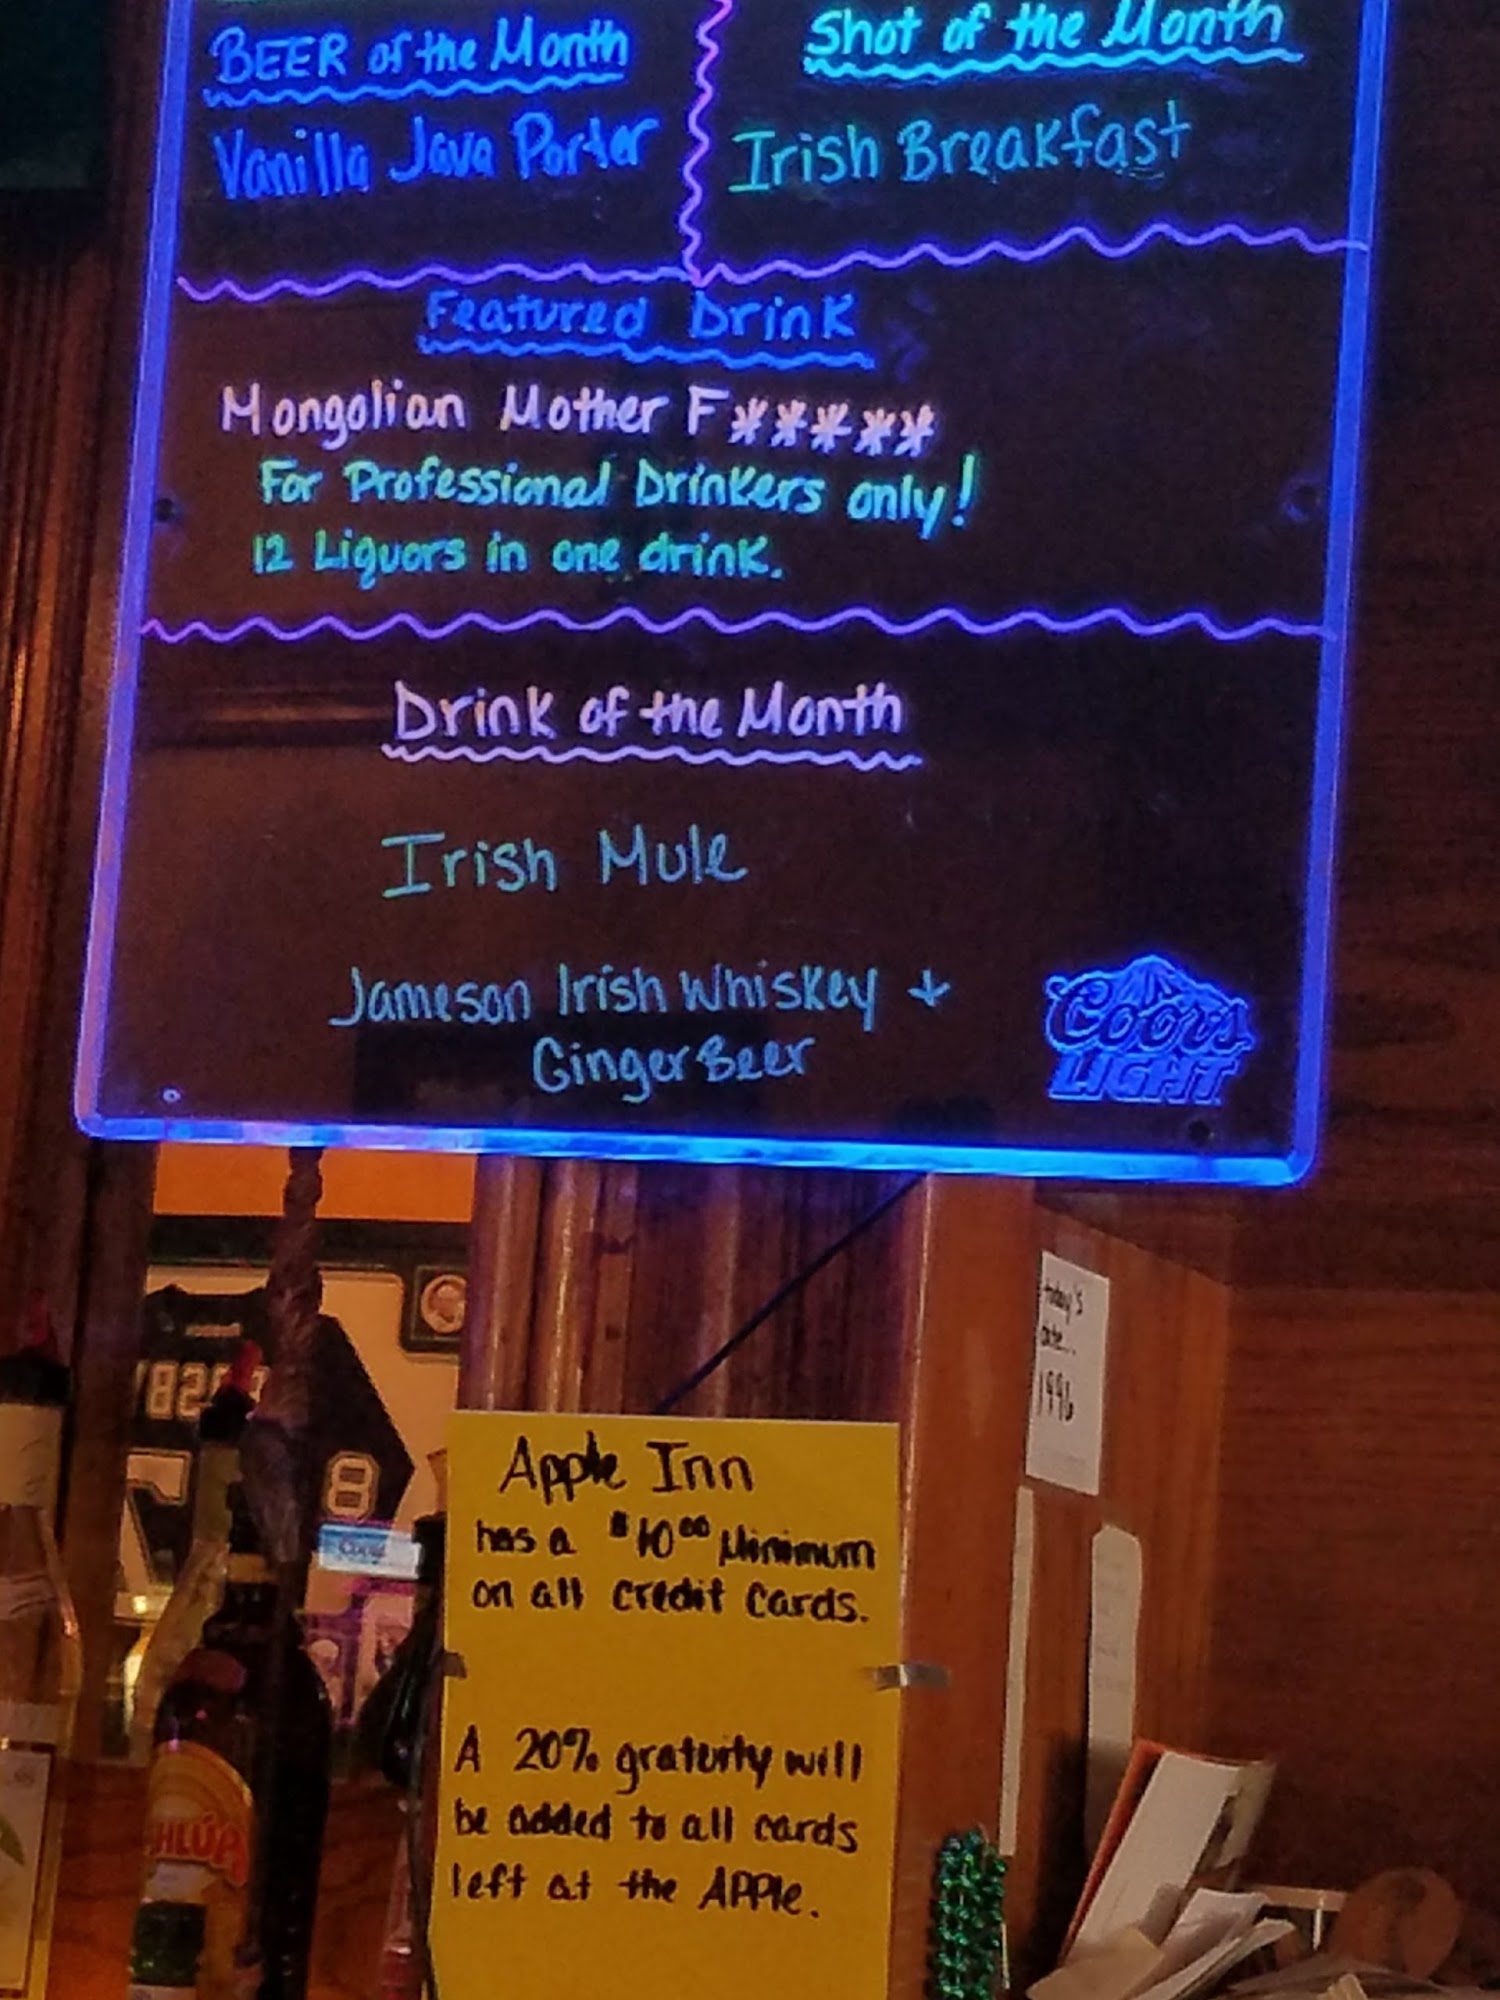 BEER of the Month
Vanilla Java Porter
Shot of the Month
Irish Breakfast
Featured Drink
Mongolian Mother F*****
For Professional Drinkers only!
12 Liquors in one drink.
Drink of the Month
Irish Mule
Jameson Irish Whiskey +
Ginger Beer
Coors
LIGHT
today's
date...
1996
8
Apple Inn
has a $10.00 Minimum
on all credit cards.
A 20% gratuity will
be added to all cards
left at the Apple.